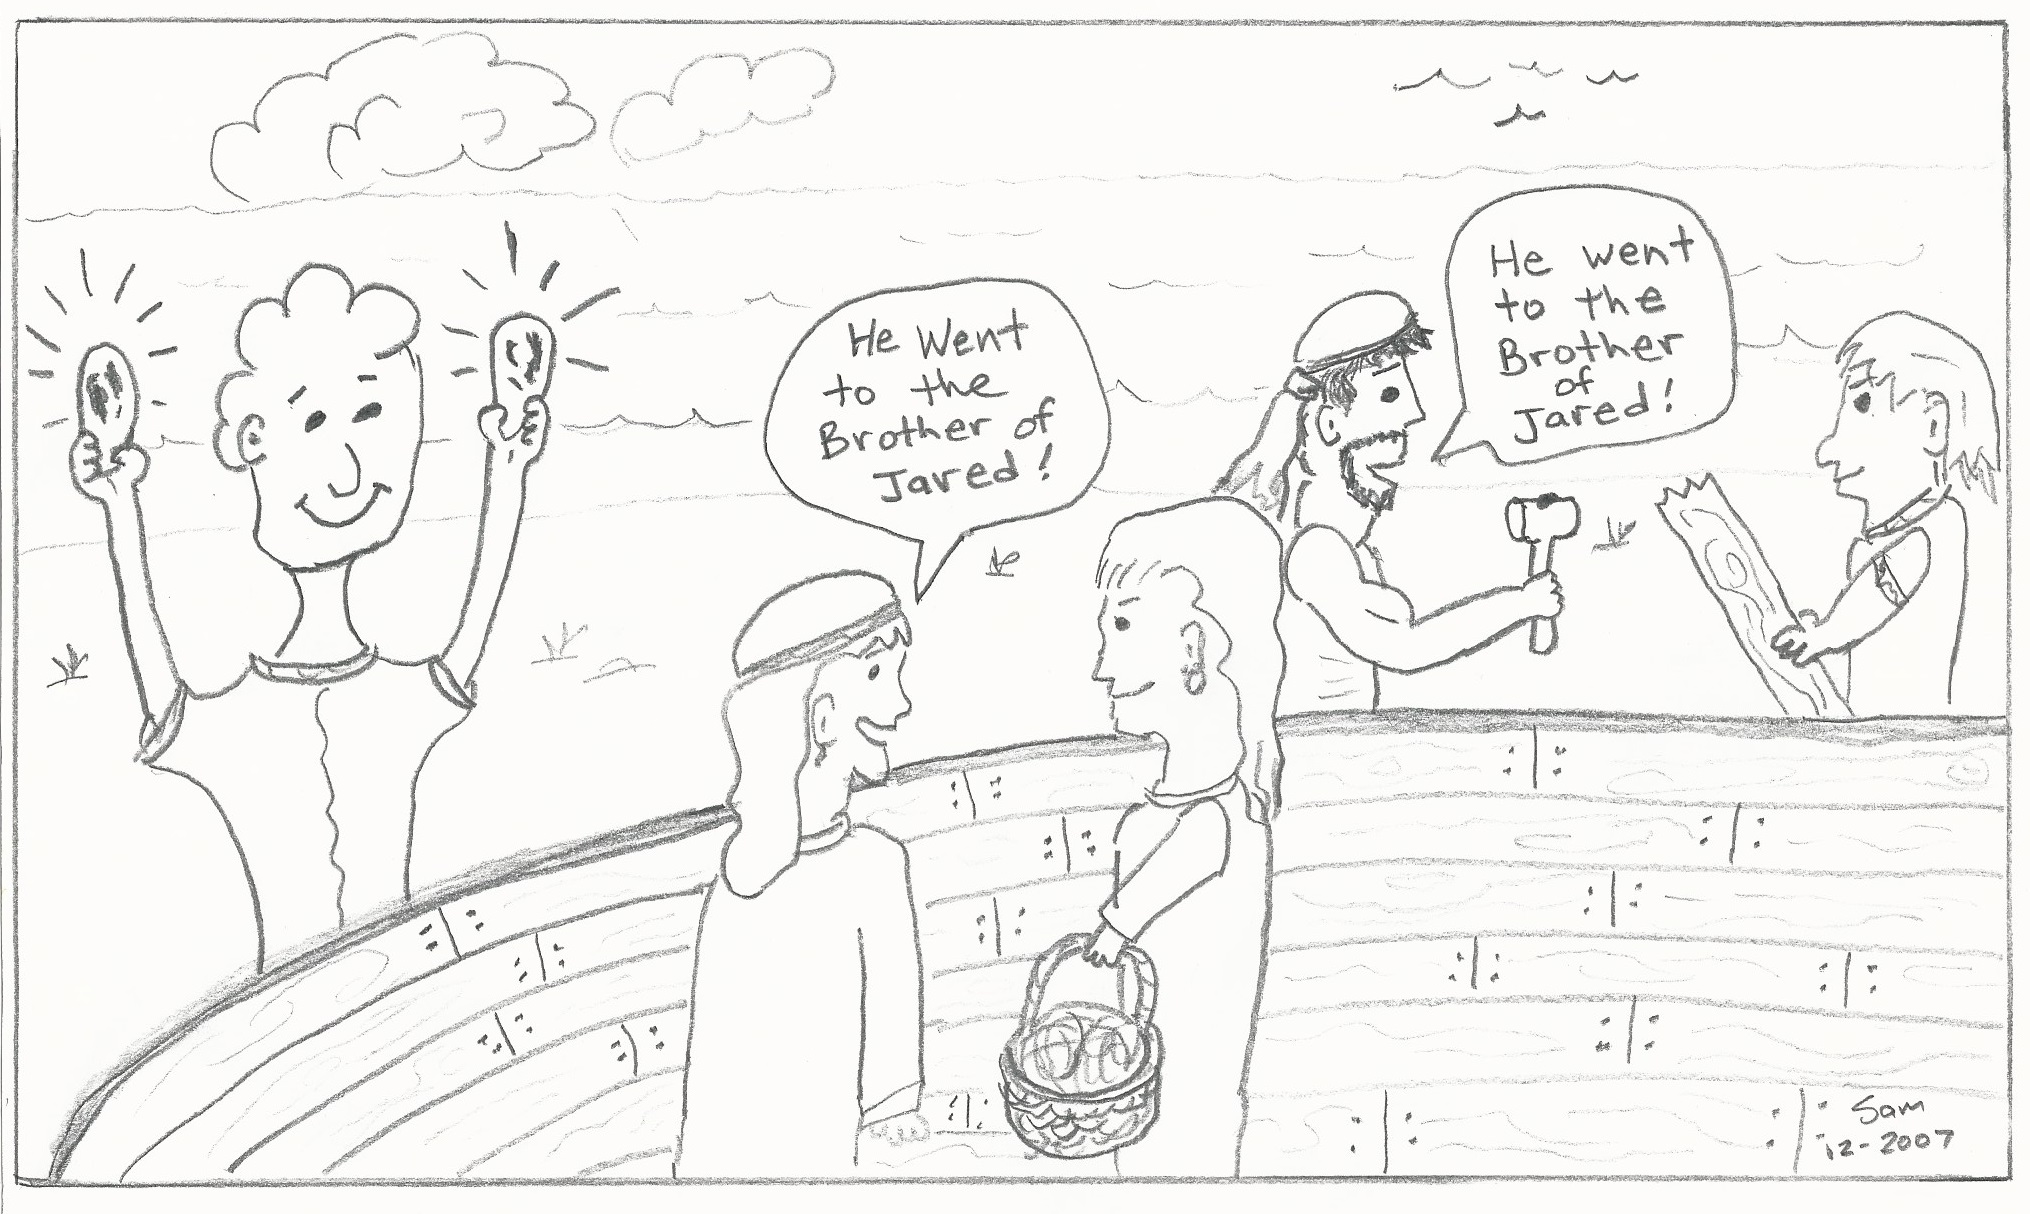 He Went
to the
Brother of
Jared!
He went
to the
Brother
of
Jared!
Sam
12-2007